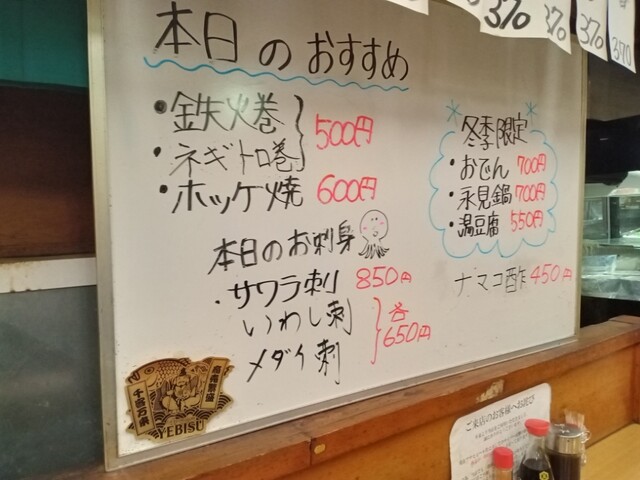 370
370
370
370
本日のおすすめ
・鉄火巻
・ネギトロ巻
500円
・ホッケ焼 600円
本日のお刺身
・サワラ刺 850円
いわし刺
メダイ刺
各
650円
冬季限定
・おでん 700円
・氷見鍋 700円
・湯豆腐 550円
ナマコ酢 450円
千客万来
YEBISU
ご来店のお客様へお詫び